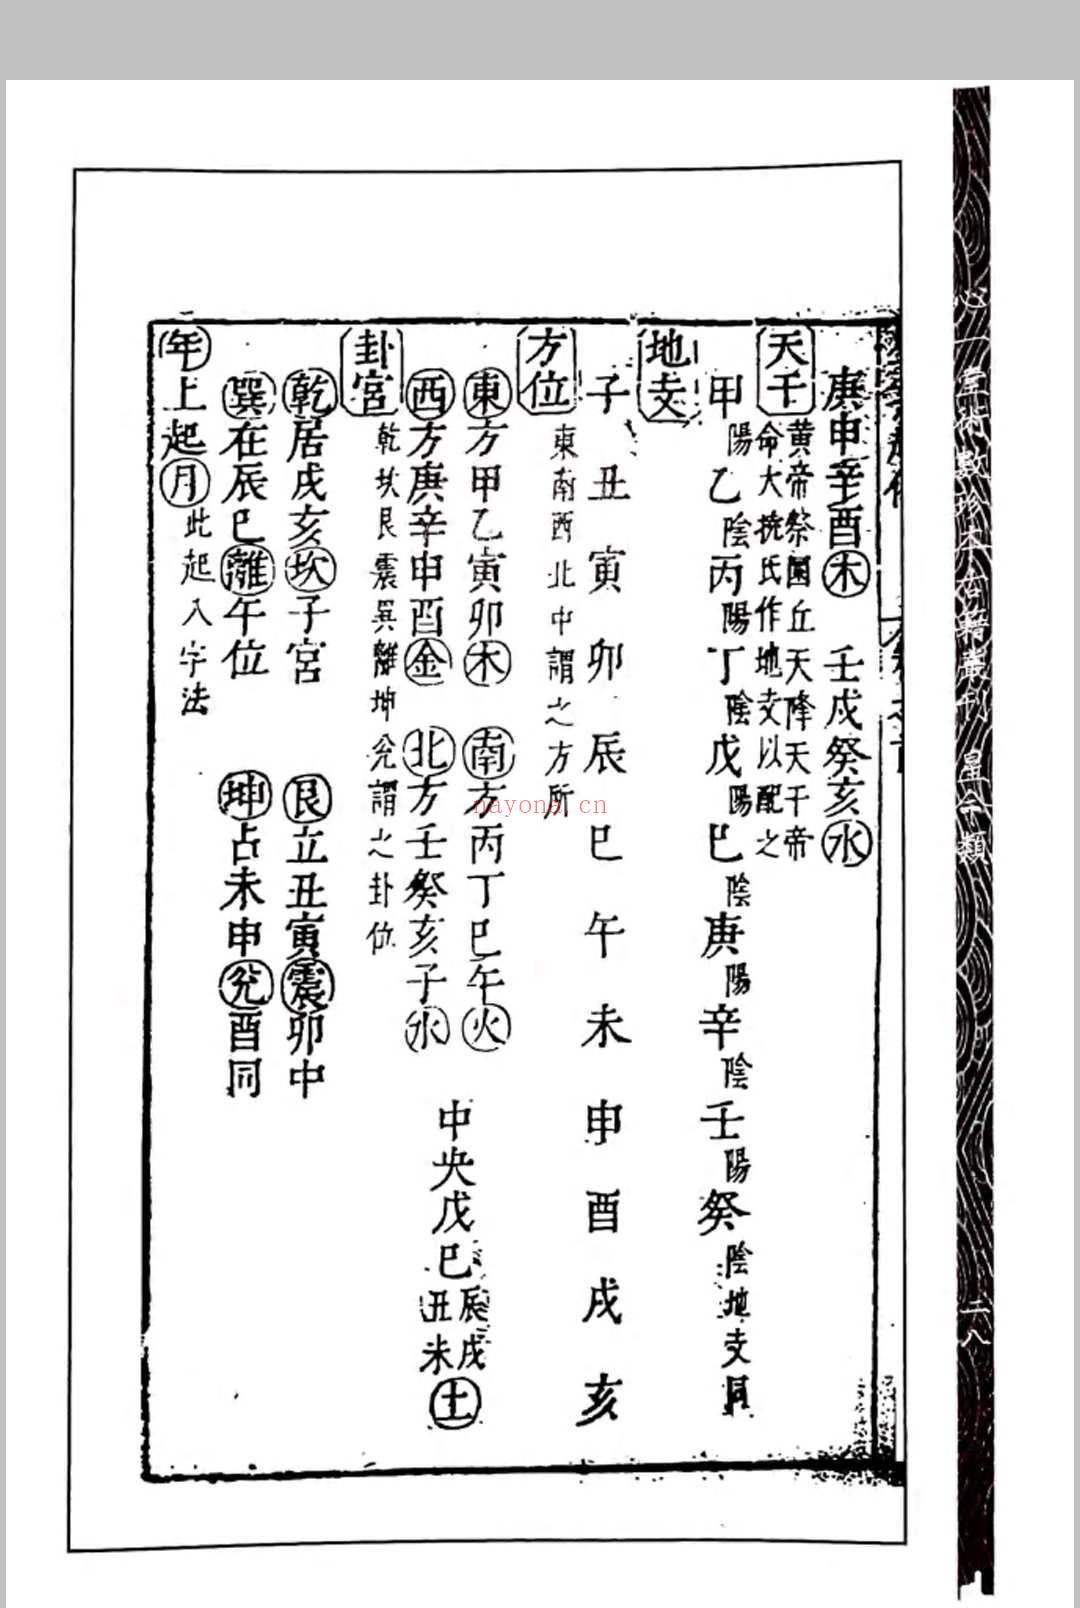 庚申辛酉木　壬戌癸亥水
天干
黄帝祭圜丘天降天干帝
命大撓氏作地支以配之
甲陽乙陰丙陽丁陰戊陽巳陰庚陽辛陰壬陽癸陰地支同
地支
子丑寅卯辰巳午未申酉戌亥
方位
東南西北中謂之方所
東方甲乙寅卯木　南方丙丁巳午火
西方庚辛申酉金　北方壬癸亥子水
中央戊巳辰戌丑未土
卦宮
乾坎艮震巽離坤兊謂之卦位
乾居戌亥坎子宮　艮立丑寅震卯中
巽在辰巳離午位　坤占未申兊酉同
年上起月
此起八字法
心一堂術數珍本古籍叢刊　星命類
二八
nayona.cn